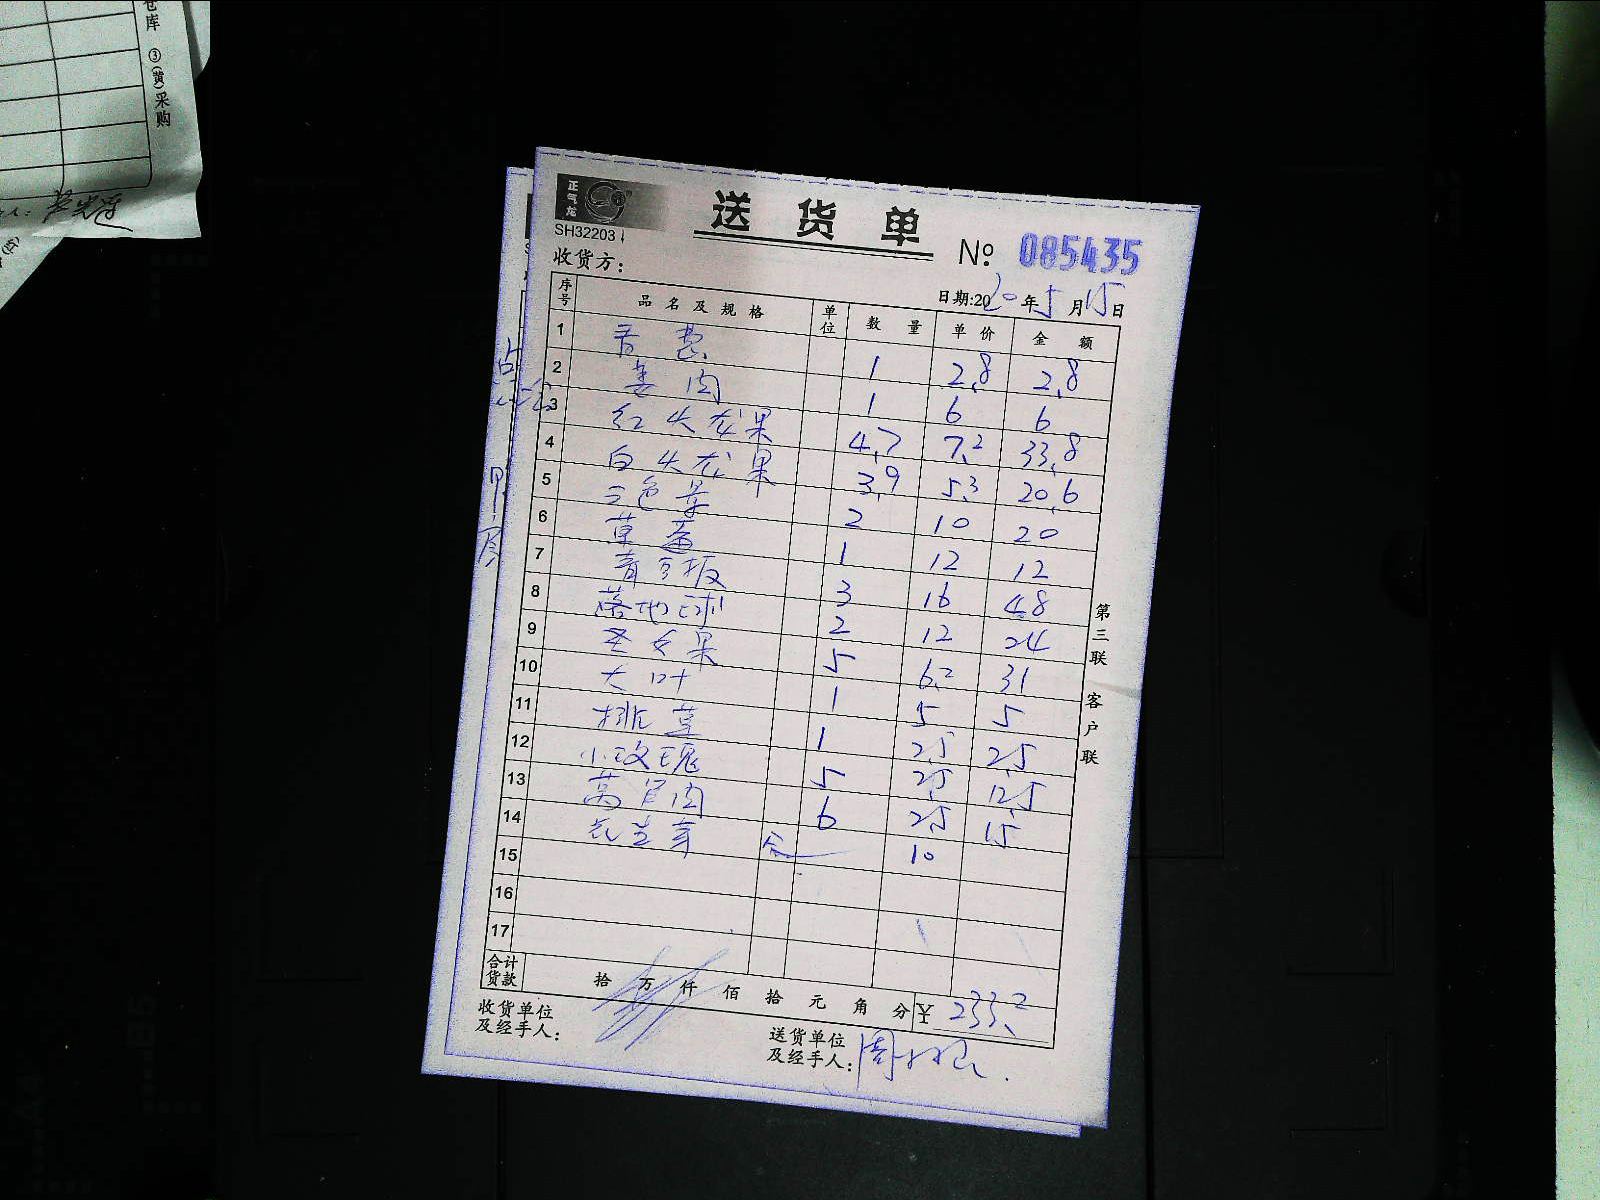 仓库 ③(黄)采购
人:
正气龙
SH32203
送货单
№ 085435
收货方:
日期:2020年5月15日
序号 品名及规格 单位 数量 单价 金额
1 香葱 1 2.8 2.8
2 姜肉 1 6 6
3 红火龙果 4.7 7.2 33.8
4 白火龙果 3.9 5.3 20.6
5 三色堇 2 10 20
6 草莓 1 12 12
7 青豆板 3 16 48
8 落地球 2 12 24
9 圣女果 5 6.2 31
10 大叶 1 5 5
11 排草 1 2.5 2.5
12 小玫瑰 5 2.5 12.5
13 莴苣肉 6 2.5 15
14 花生芽 合 10
15
16
17
合计货款 拾 万 仟 佰 拾 元 角 分 ¥ 233.2
收货单位及经手人:
送货单位及经手人:
第三联 客户联